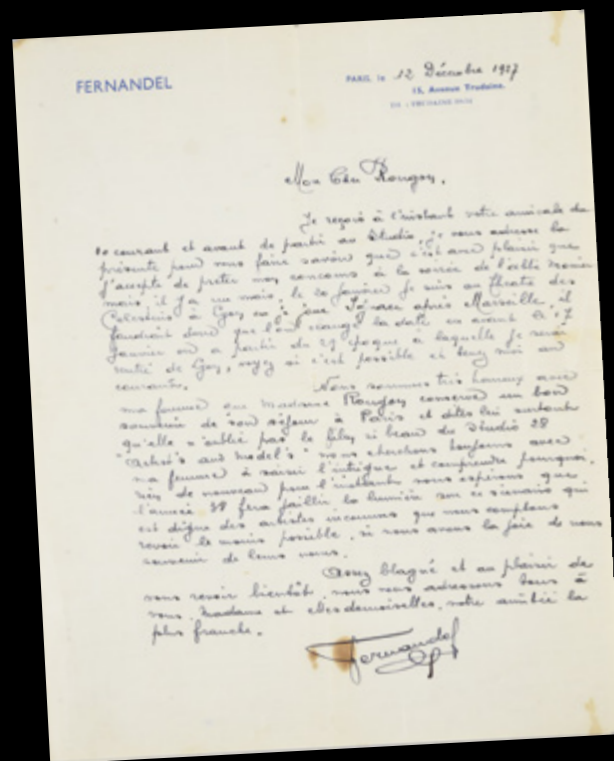 FERNANDEL
PARIS, le 12 Décembre 1937
15, Avenue Trudaine.
Mon Cher Rougon,
Je reçois à l'instant votre amicale du
courant et avant de partir au Studio, je vous adresse la
présente pour vous faire savoir que c'est avec plaisir que
j'accepte de prêter mon concours à la soirée de l'
mais il y a un mais, le 20 Janvier je suis au théâtre des
Célestins à Lyon où je joue Ignace après Marseille, il
faudrait donc que l'on change la date en avant le 17
Janvier ou à partir du 27 époque à laquelle je serai
rentré de Lyon, voyez si c'est possible et tenez moi au
courant.
Nous sommes très heureux avec
ma femme que Madame Rougon conserve un bon
souvenir de son séjour à Paris et dites lui surtout
qu'elle n'oublie pas le film si beau du Studio 28
"Artist's and Model's" nous cherchons toujours avec
ma femme à saisir l'intrigue et comprendre pourquoi.
rien de nouveau pour l'instant nous espérons que
l'année 38 fera jaillir la lumière sur ce scénario qui
est digne des artistes inconnus que nous comptons
revoir le moins possible, si nous avons la joie de nous
souvenir de leurs noms.
Assez blagué et au plaisir de
vous revoir bientôt, nous vous adressons tous à
vous, Madame et Mesdemoiselles, notre amitiée la
plus franche.
Fernandel